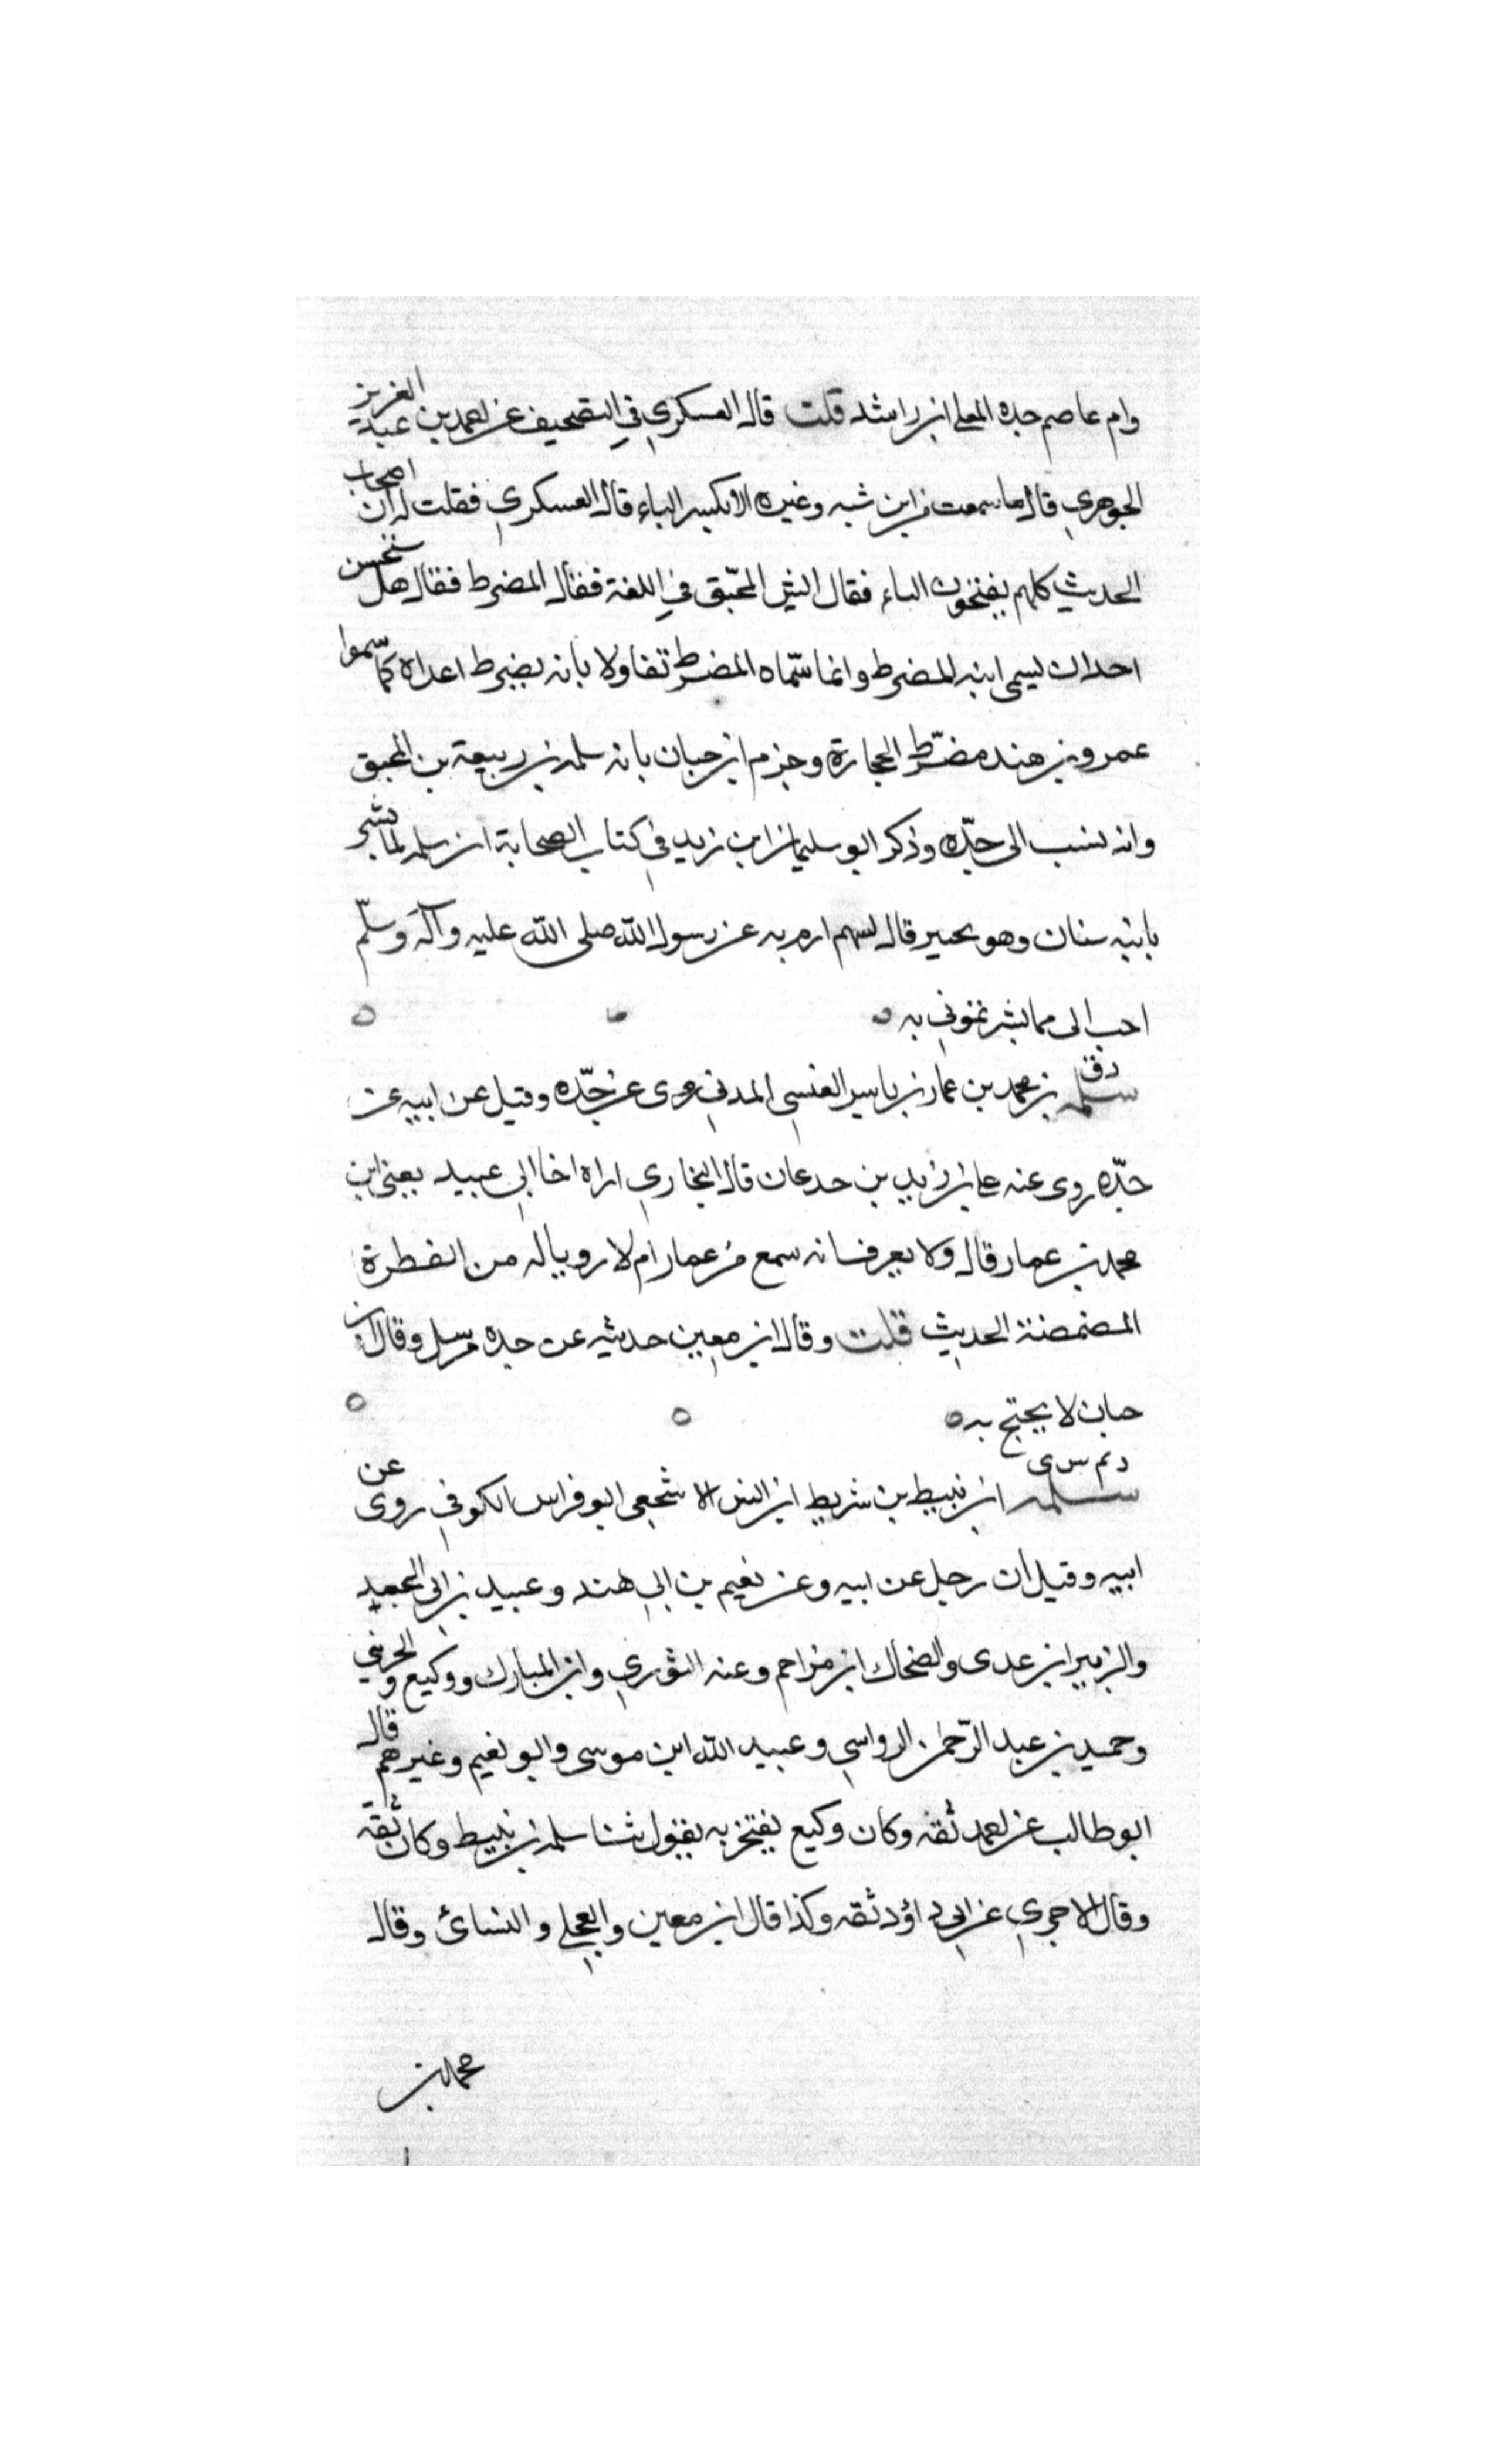 وام عاصم جدة المعلى ابن راشد قلت قال العسكري في التصحيف عن احمد بن عبد العزيز
الجوهري قال ما سمعت من ابن شبه وغيره الا بكسر الباء قال العسكري فقلت له ان اصحاب
الحديث كلهم يفتحون الباء فقال ايش المحبّق في اللغة فقال المضرط فقال هل يستحسن
احد ان يسمي ابنه المضرط وانما سمّاه المضرّط تفاولا بانه يضرط اعداه كما سّموا
عمرو بن هند مضرّط الحجارة وجزم ابن حبان بانه سلمه بن ربيعة بن المحبق
وانه نسب الى جدّه وذكر ابو سليمان ابن زيد في كتاب الصحابة ان سلمه لما بشر
بابنه سنان وهو بحنير قال لسهم ارم به عن رسول الله صلى الله عليه وآله وسلّم
احب الى مما بشرتموني به
دق
سلمه بن محمد بن عمار بن ياسر العنسي المدني روى عن جدّه وقيل عن ابيه عن
جدّه روى عنه علي بن زيد بن جدعان قال البخاري اراه اخا ابي عبيد يعني ابن
محمد بن عمار قال ولا يعرف انه سمع من عمار ام لا رويا له من الفطرة
المضمضة الحديث قلت وقال ابن معين حديثه عن جده مرسل وقال ابن
حبان لا يحتج به
د تم س ى
سلمه ابن نبيط بن شريط ابن انس الاشجعي ابو فراس الكوفي روى عن
ابيه وقيل ان رجل عن ابيه وعن نعيم بن ابي هند وعبيد بن ابي الجعيد
والزبير ابن عدى والضحاك ابن مزاحم وعنه الثوري وابن المبارك ووكيع والخريبي
وحميد بن عبد الرّحمٰن الرواسي وعبيد الله ابن موسى وابو نعيم وغيرهم قال
ابو طالب عن احمد ثقه وكان وكيع يفتخر به يقول ثنا سلمه بن نبيط وكان ثقه
وقال الاجري عن ابي داؤد ثقه وكذا قال ابن معين والعجلي والنسائي وقال
محمد بن